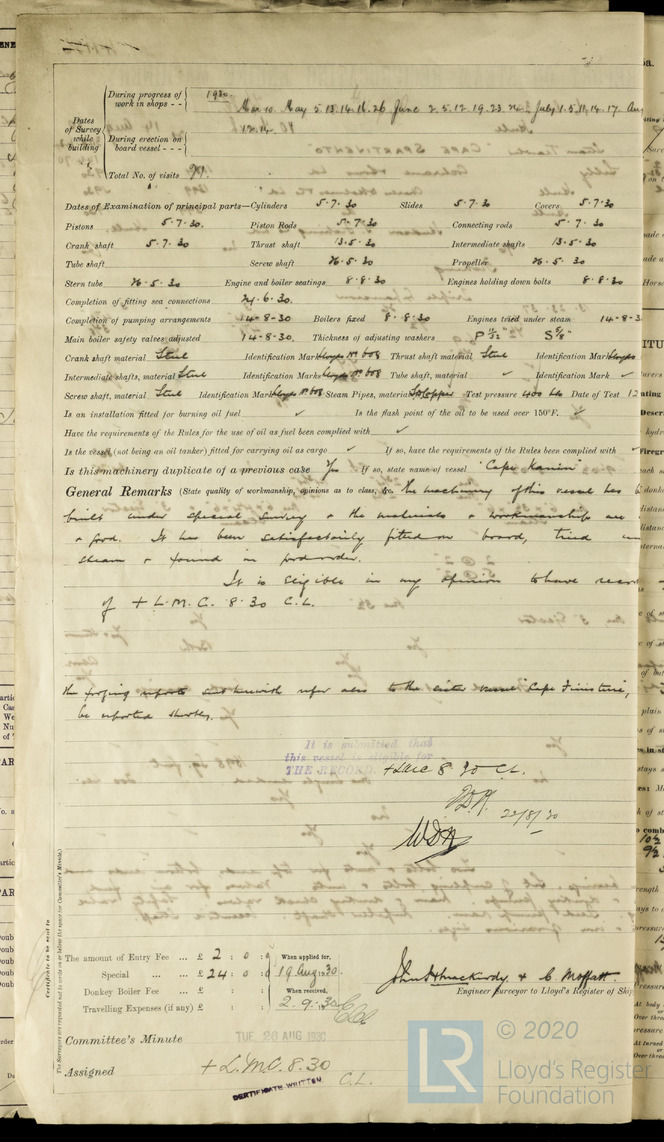 Dates of Survey while building
During progress of work in shops - -
1930.
Mar 10. May 5. 13. 14. 16. 26 June 2. 5. 12. 19. 23. 24. July 1. 5. 11. 14. 17. Aug
12. 14.
During erection on board vessel - - -
Total No. of visits
Dates of Examination of principal parts—Cylinders 5·7·30 Slides 5·7·30 Covers 5·7·30
Pistons 5·7·30. Piston Rods 5·7·30 Connecting rods 5·7·30
Crank shaft 5·7·30 Thrust shaft 13·5·30 Intermediate shafts 13·5·30
Tube shaft Screw shaft 26·5·30 Propeller 26·5·30
Stern tube 26·5·30 Engine and boiler seatings 8·8·30 Engines holding down bolts 8·8·30
Completion of fitting sea connections 24·6·30.
Completion of pumping arrangements 14-8-30 Boilers fixed 8·8·30 Engines tried under steam 14-8-3
Main boiler safety valves adjusted 14-8-30. Thickness of adjusting washers P 11/32" S 5/8"
Crank shaft material Steel Identification Mark Lloyds No 608 Thrust shaft material Steel Identification Mark Lloyds
Intermediate shafts, material Steel Identification Marks Lloyds No 608 Tube shaft, material ✓ Identification Mark ✓
Screw shaft, material Steel Identification Mark Lloyds No 608 Steam Pipes, material Copper Test pressure 400 lbs Date of Test 12
Is an installation fitted for burning oil fuel ✓ Is the flash point of the oil to be used over 150°F. ✓
Have the requirements of the Rules for the use of oil as fuel been complied with ✓
Is the vessel (not being an oil tanker) fitted for carrying oil as cargo ✓ If so, have the requirements of the Rules been complied with ✓
Is this machinery duplicate of a previous case Yes If so, state name of vessel "Cape Kanin"
General Remarks (State quality of workmanship, opinions as to class, &c. The machinery of this vessel has b
built under special survey & the materials & workmanship are
& good. It has been satisfactorily fitted on board, tried un
steam & found in good order.
It is eligible in my opinion to have recor
of + L.M.C. 8·30 C.L.
The forging reports sent herewith refer also to the sister vessel "Cape Finisterre",
be reported shortly.
It is submitted that
this vessel is eligible for
THE RECORD. + LMC 8·30 CL.
22/8/30
WDH
Certificate to be sent to
The Surveyors are requested not to write on or below the space for Committee's Minute.
The amount of Entry Fee ... £ 2 : 0 : 0 When applied for,
Special ... ... £ 24 : 0 : 0 19 Aug 1930.
Donkey Boiler Fee ... £ : : When received,
Travelling Expenses (if any) £ : : 2. 9. 30
& C. Moffatt.
Engineer Surveyor to Lloyd's Register of Ship
Committee's Minute TUE 26 AUG 1930
Assigned + L.M.C. 8.30
C.L.
CERTIFICATE WRITTEN
LR
© 2020
Lloyd's Register
Foundation